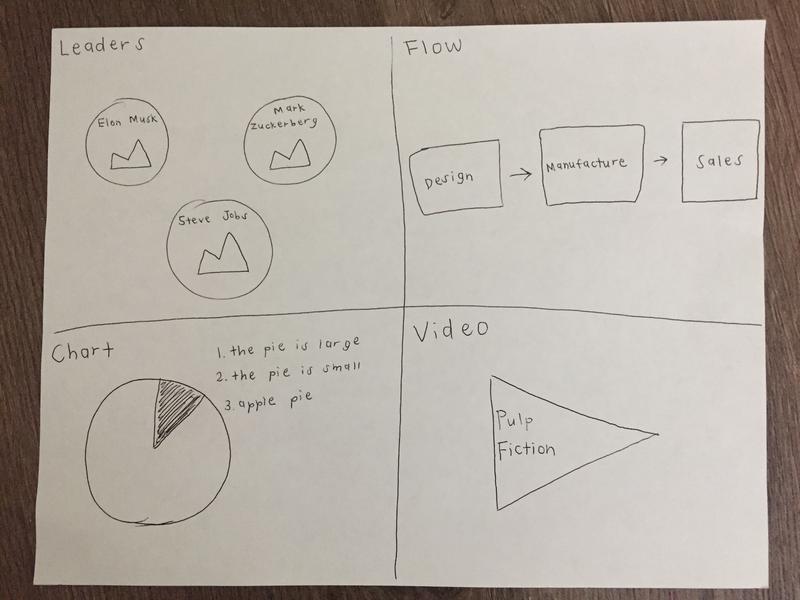 Leaders
Elon Musk
Mark
Zuckerberg
Steve Jobs
Flow
Design
Manufacture
Sales
Chart
1. the pie is large
2. the pie is small
3. apple pie
Video
Pulp
Fiction